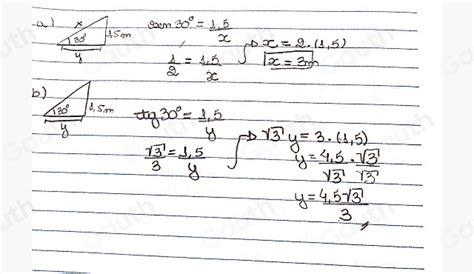 a) x 30° 1,5m y
sen 30° = 1,5/x
1/2 = 1,5/x → x = 2 . (1,5)
x = 3m
b) 30° 1,5m y
tg 30° = 1,5/y
√3/3 = 1,5/y → √3 y = 3 . (1,5)
y = 4,5 . √3 / √3 √3
y = 4,5√3 / 3